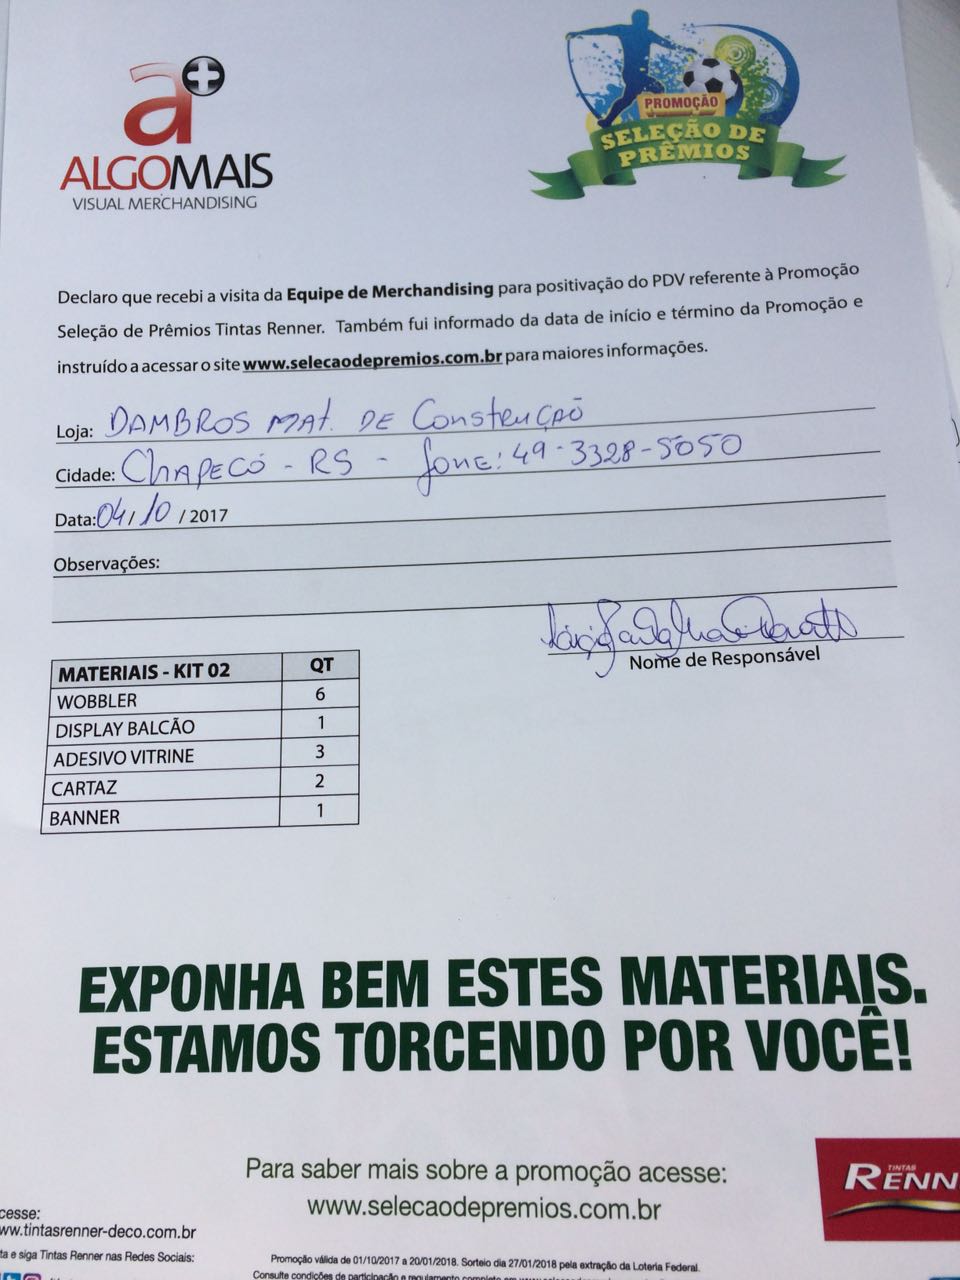 a+
ALGOMAIS
VISUAL MERCHANDISING
PROMOÇÃO
SELEÇÃO DE
PRÊMIOS
Declaro que recebi a visita da Equipe de Merchandising para positivação do PDV referente à Promoção
Seleção de Prêmios Tintas Renner. Também fui informado da data de início e término da Promoção e
instruído a acessar o site www.selecaodepremios.com.br para maiores informações.
Loja: DAMBROS MAT. DE CONSTRUÇÃO
Cidade: CHAPECÓ - RS - fone: 49-3328-5050
Data: 04/10/2017
Observações:
Nome de Responsável
MATERIAIS - KIT 02 QT
WOBBLER 6
DISPLAY BALCÃO 1
ADESIVO VITRINE 3
CARTAZ 2
BANNER 1
EXPONHA BEM ESTES MATERIAIS.
ESTAMOS TORCENDO POR VOCÊ!
Para saber mais sobre a promoção acesse:
www.selecaodepremios.com.br
TINTAS
RENN
cesse:
ww.tintasrenner-deco.com.br
ta e siga Tintas Renner nas Redes Sociais:
Promoção válida de 01/10/2017 a 20/01/2018. Sorteio dia 27/01/2018 pela extração da Loteria Federal.
Consulte condições de participação e regulamento completo em